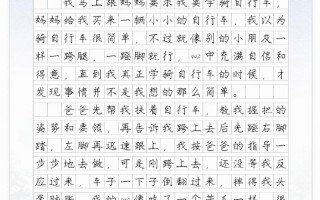 我马上跟妈妈要求我要学骑自行车,
妈妈给我买来一辆小小的自行车,我以为
骑自行车很简单,不过就像别的小朋友一
样一跨腿,一蹬脚就行,心中充满自信和
得意,直到我真正学骑自行车的时候,才
发现事情并不是我想的那么简单。
爸爸先帮我扶着自行车,教我握把的
姿势和要领,再告诉我跨上去后先蹬右脚
踏,左脚再迅速跟上,我按爸爸的指导一
步步地去做,可是刚跨上去,还没等我反
应过来,车子一下子倒翻过来,摔得我头